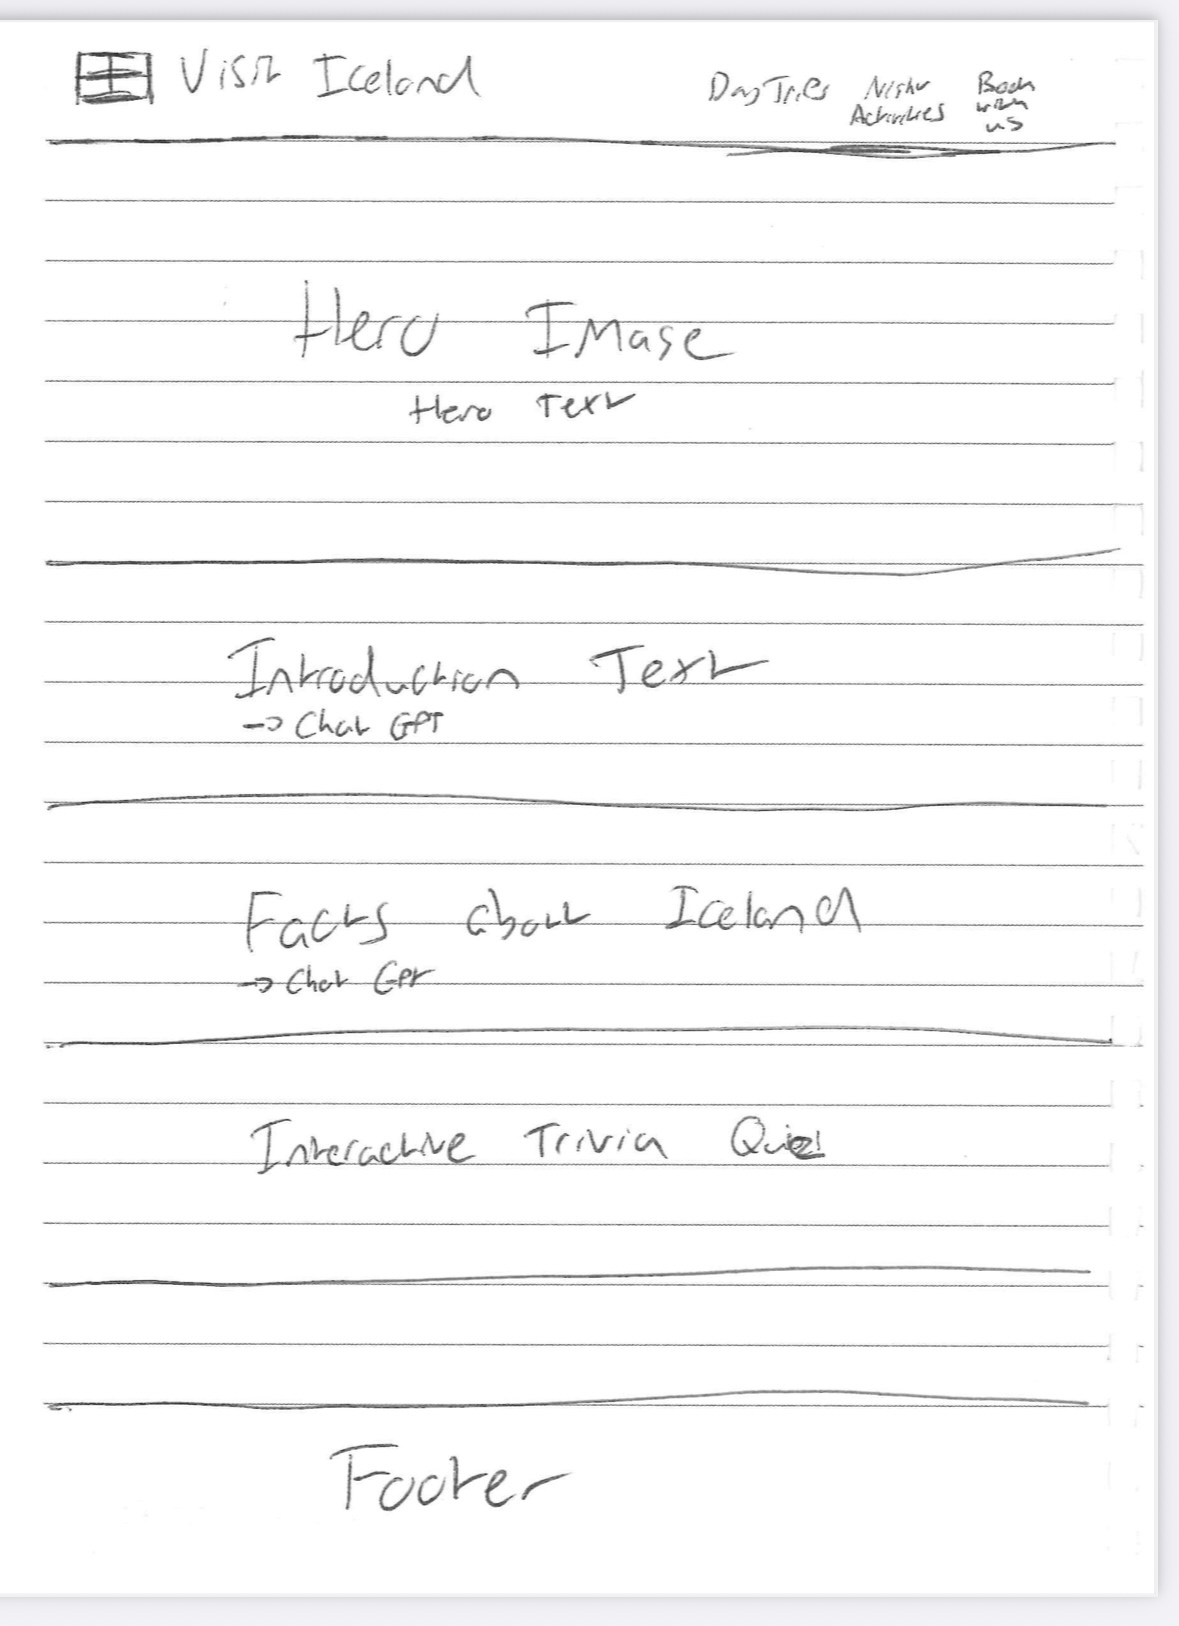 Visit Iceland
Day Trips
Night
Activities
Book
with
us
Hero Image
Hero Text
Introduction Text
-> Chat GPT
Facts about Iceland
-> Chat GPT
Interactive Trivia Quiz!
Footer